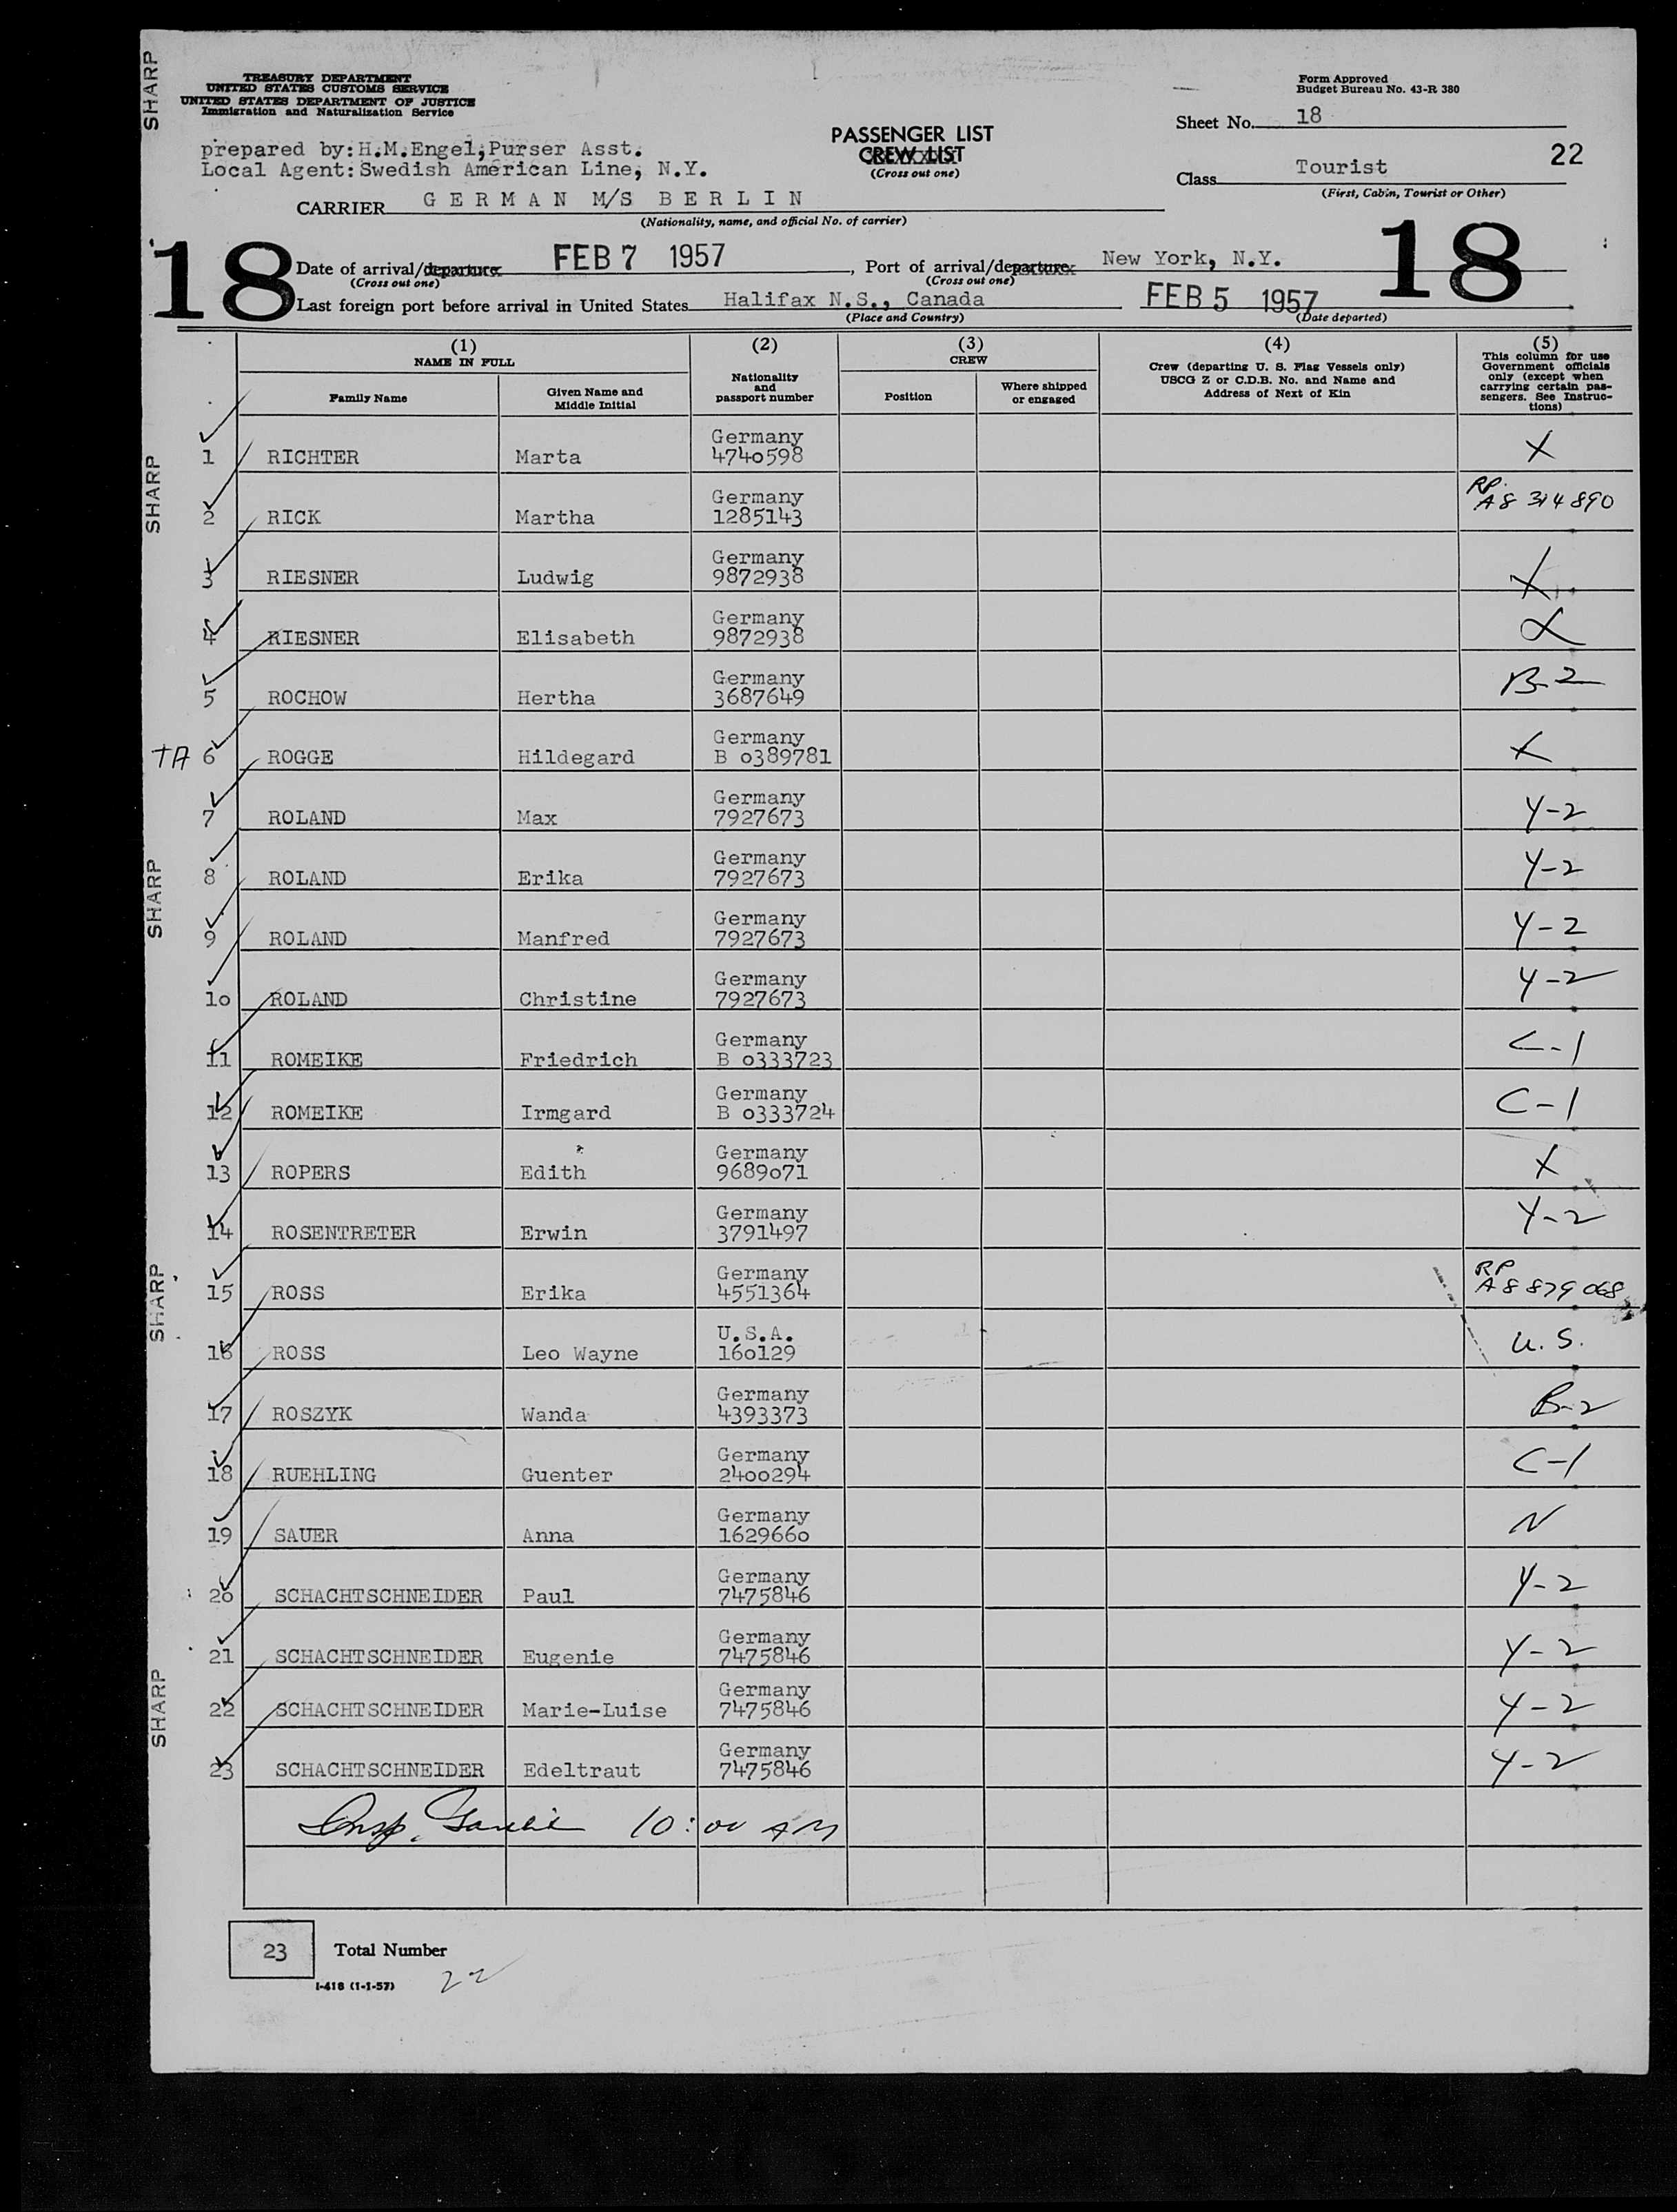 TREASURY DEPARTMENT
UNITED STATES CUSTOMS SERVICE
UNITED STATES DEPARTMENT OF JUSTICE
Immigration and Naturalization Service
Form Approved
Budget Bureau No. 43-R 380
prepared by: H.M.Engel, Purser Asst.
Local Agent: Swedish American Line, N.Y.
PASSENGER LIST
CREW LIST
(Cross out one)
Sheet No. 18
22
Class Tourist
(First, Cabin, Tourist or Other)
CARRIER GERMAN M/S BERLIN
(Nationality, name, and official No. of carrier)
18
Date of arrival/departure FEB 7 1957, Port of arrival/departure New York, N.Y.
(Cross out one) (Cross out one)
18
Last foreign port before arrival in United States Halifax N.S., Canada FEB 5 1957
(Place and Country) (Date departed)
(1) NAME IN FULL
Family Name
Given Name and Middle Initial
(2) Nationality and passport number
(3) CREW
Position
Where shipped or engaged
(4) Crew (departing U. S. Flag Vessels only) USCG Z or C.D.B. No. and Name and Address of Next of Kin
(5) This column for use Government officials only (except when carrying certain passengers. See Instructions)
1 RICHTER Marta Germany 4740598 X
2 RICK Martha Germany 1285143 RP A8 314 890
3 RIESNER Ludwig Germany 9872938 X
4 RIESNER Elisabeth Germany 9872938
5 ROCHOW Hertha Germany 3687649 B-2
TA 6 ROGGE Hildegard Germany B 0389781 X
7 ROLAND Max Germany 7927673 Y-2
8 ROLAND Erika Germany 7927673 Y-2
9 ROLAND Manfred Germany 7927673 Y-2
10 ROLAND Christine Germany 7927673 Y-2
11 ROMEIKE Friedrich Germany B 0333723 C-1
12 ROMEIKE Irmgard Germany B 0333724 C-1
13 ROPERS Edith Germany 9689071 X
14 ROSENTRETER Erwin Germany 3791497 Y-2
15 ROSS Erika Germany 4551364 RP A8 879 068
16 ROSS Leo Wayne U.S.A. 160129 U.S.
17 ROSZYK Wanda Germany 4393373 B-2
18 RUEHLING Guenter Germany 2400294 C-1
19 SAUER Anna Germany 1629660 N
20 SCHACHTSCHNEIDER Paul Germany 7475846 Y-2
21 SCHACHTSCHNEIDER Eugenie Germany 7475846 Y-2
22 SCHACHTSCHNEIDER Marie-Luise Germany 7475846 Y-2
23 SCHACHTSCHNEIDER Edeltraut Germany 7475846 Y-2
Insp. 10:00 AM
23 Total Number
I-418 (1-1-57)
22
SHARP
SHARP
SHARP
SHARP
SHARP